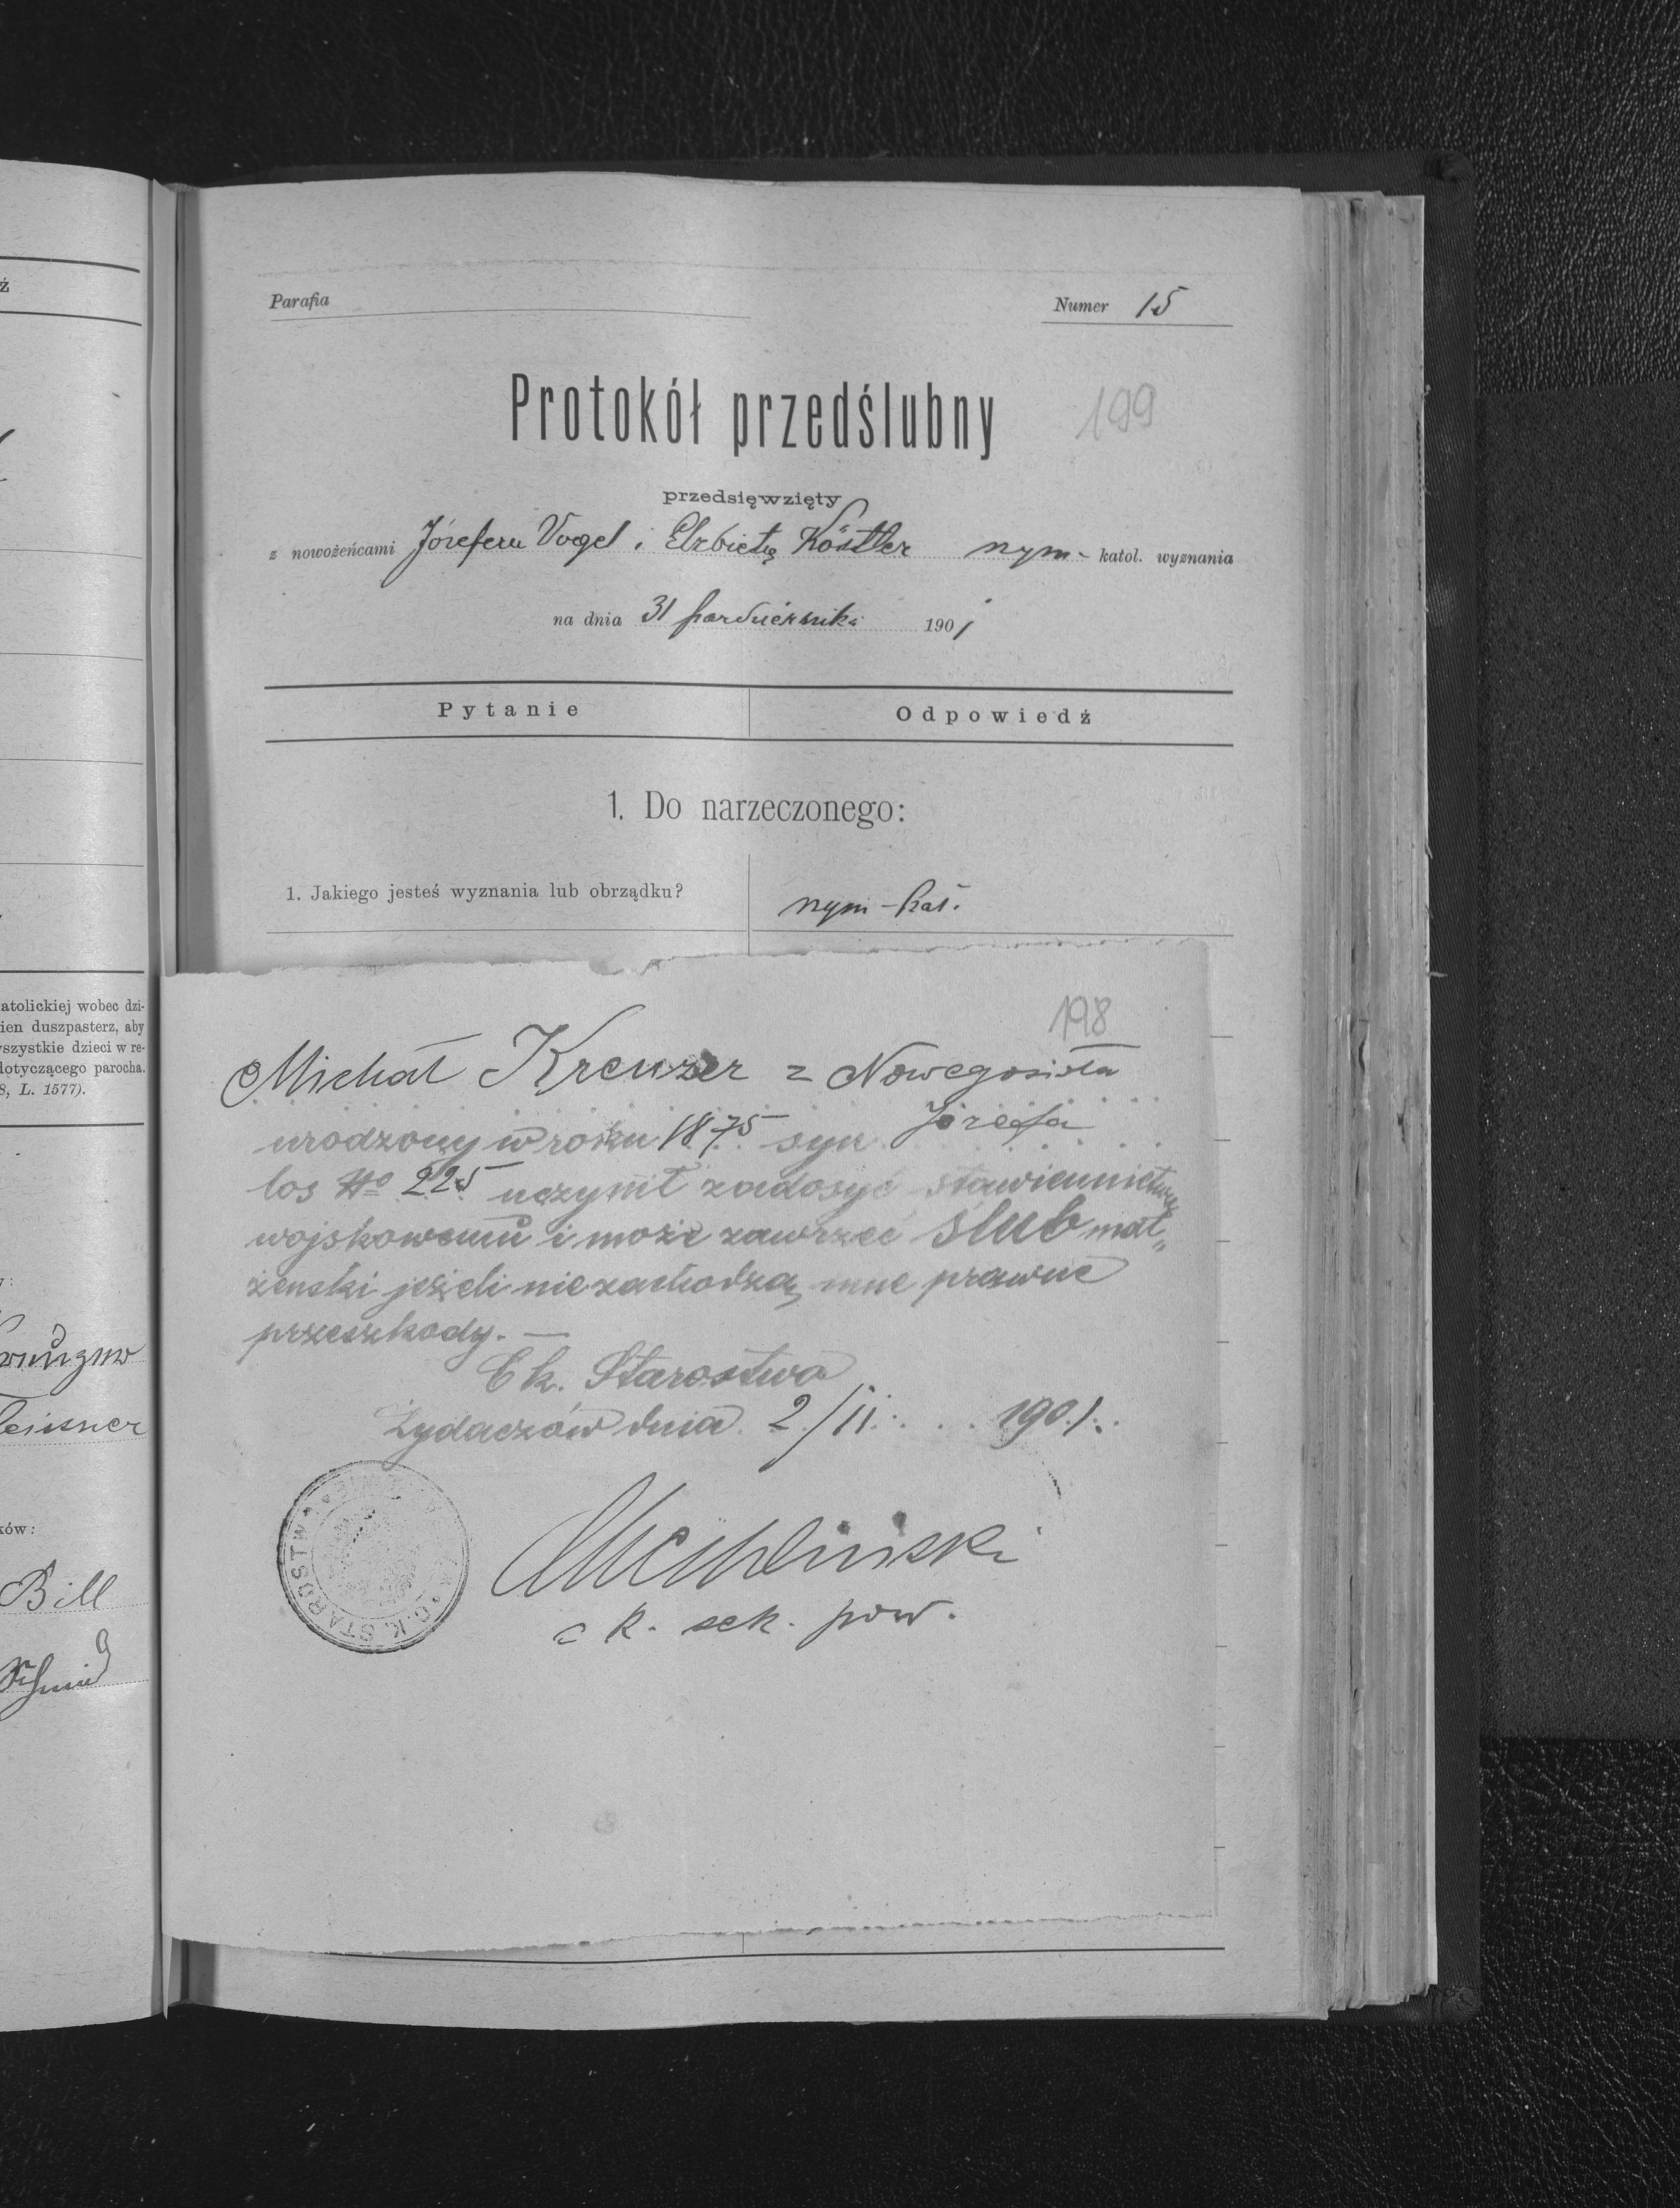 ź
atolickiej wobec dzi-
ien duszpasterz, aby
wszystkie dzieci w re-
dotyczącego parocha.
8, L. 1577).
ków:
Bill
Schmid
Parafia
Numer 15
Protokół przedślubny
199
przedsięwzięty
z nowożeńcami Józefem Vogel i Elżbietą Köstler rzym- katol. wyznania
na dnia 31 października 1901
Pytanie
Odpowiedź
1. Do narzeczonego:
1. Jakiego jesteś wyznania lub obrządku?
rzym-kat.
198
Michał Kreuzer z Nowegosioła
urodzony w roku 1875 syn Józefa
los No 225 uczynił zadosyć stawiennictwu
wojskowemu i może zawrzeć ślub mał„
żeński jeżeli nie zachodzą inne prawne
przeszkody. —
Ck. Starostwa
Żydaczów dnia 2/11 1901.
C.K. STAROSTWO
c k. sek. pow.